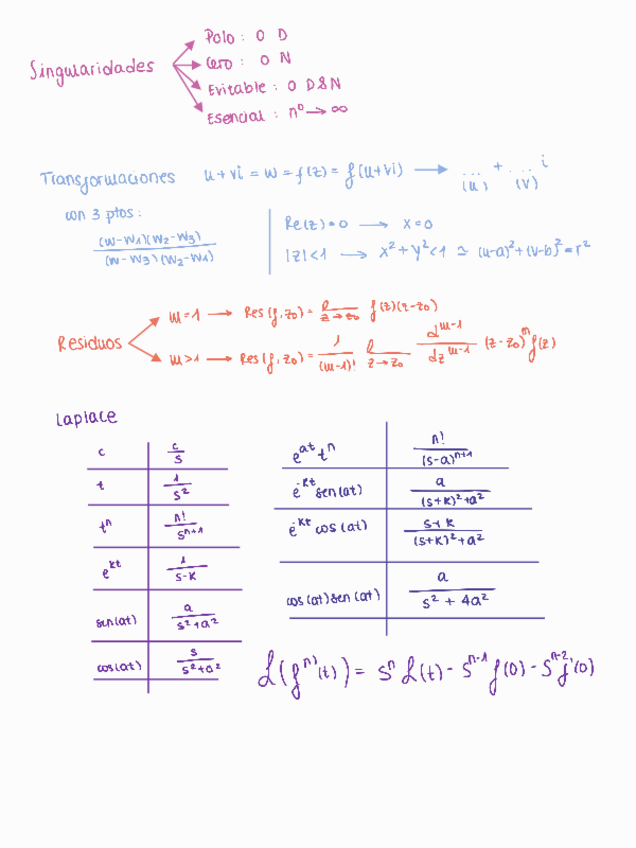 Singularidades
Polo : 0 D
Cero : 0 N
Evitable : 0 D&N
Esencial : nº → ∞
Transformaciones u+vi = w = f(z) = f(u+vi) → ...(u) + ...(v) i
con 3 ptos :
(w-w1)(w2-w3) / (w-w3)(w2-w1)
Re(z)=0 → x=0
|z|<1 → x²+y²<1 ≃ (u-a)²+(v-b)²=r²
Residuos
m=1 → Res(f,z0) = l z→z0 f(z)(z-z0)
m>1 → Res(f,z0) = 1/(m-1)! l z→z0 d^m-1/dz^m-1 (z-z0)^m f(z)
Laplace
c | c/s
t | 1/s²
t^n | n!/s^n+1
e^kt | 1/s-k
sen(at) | a/s²+a²
cos(at) | s/s²+a²
e^at t^n | n!/(s-a)^n+1
e^-kt sen(at) | a/(s+k)²+a²
e^-kt cos(at) | s+k/(s+k)²+a²
cos(at)sen(at) | a/s² + 4a²
L(f^n)(t)) = s^n L(t) - s^n-1 f(0) - s^n-2 f'(0)